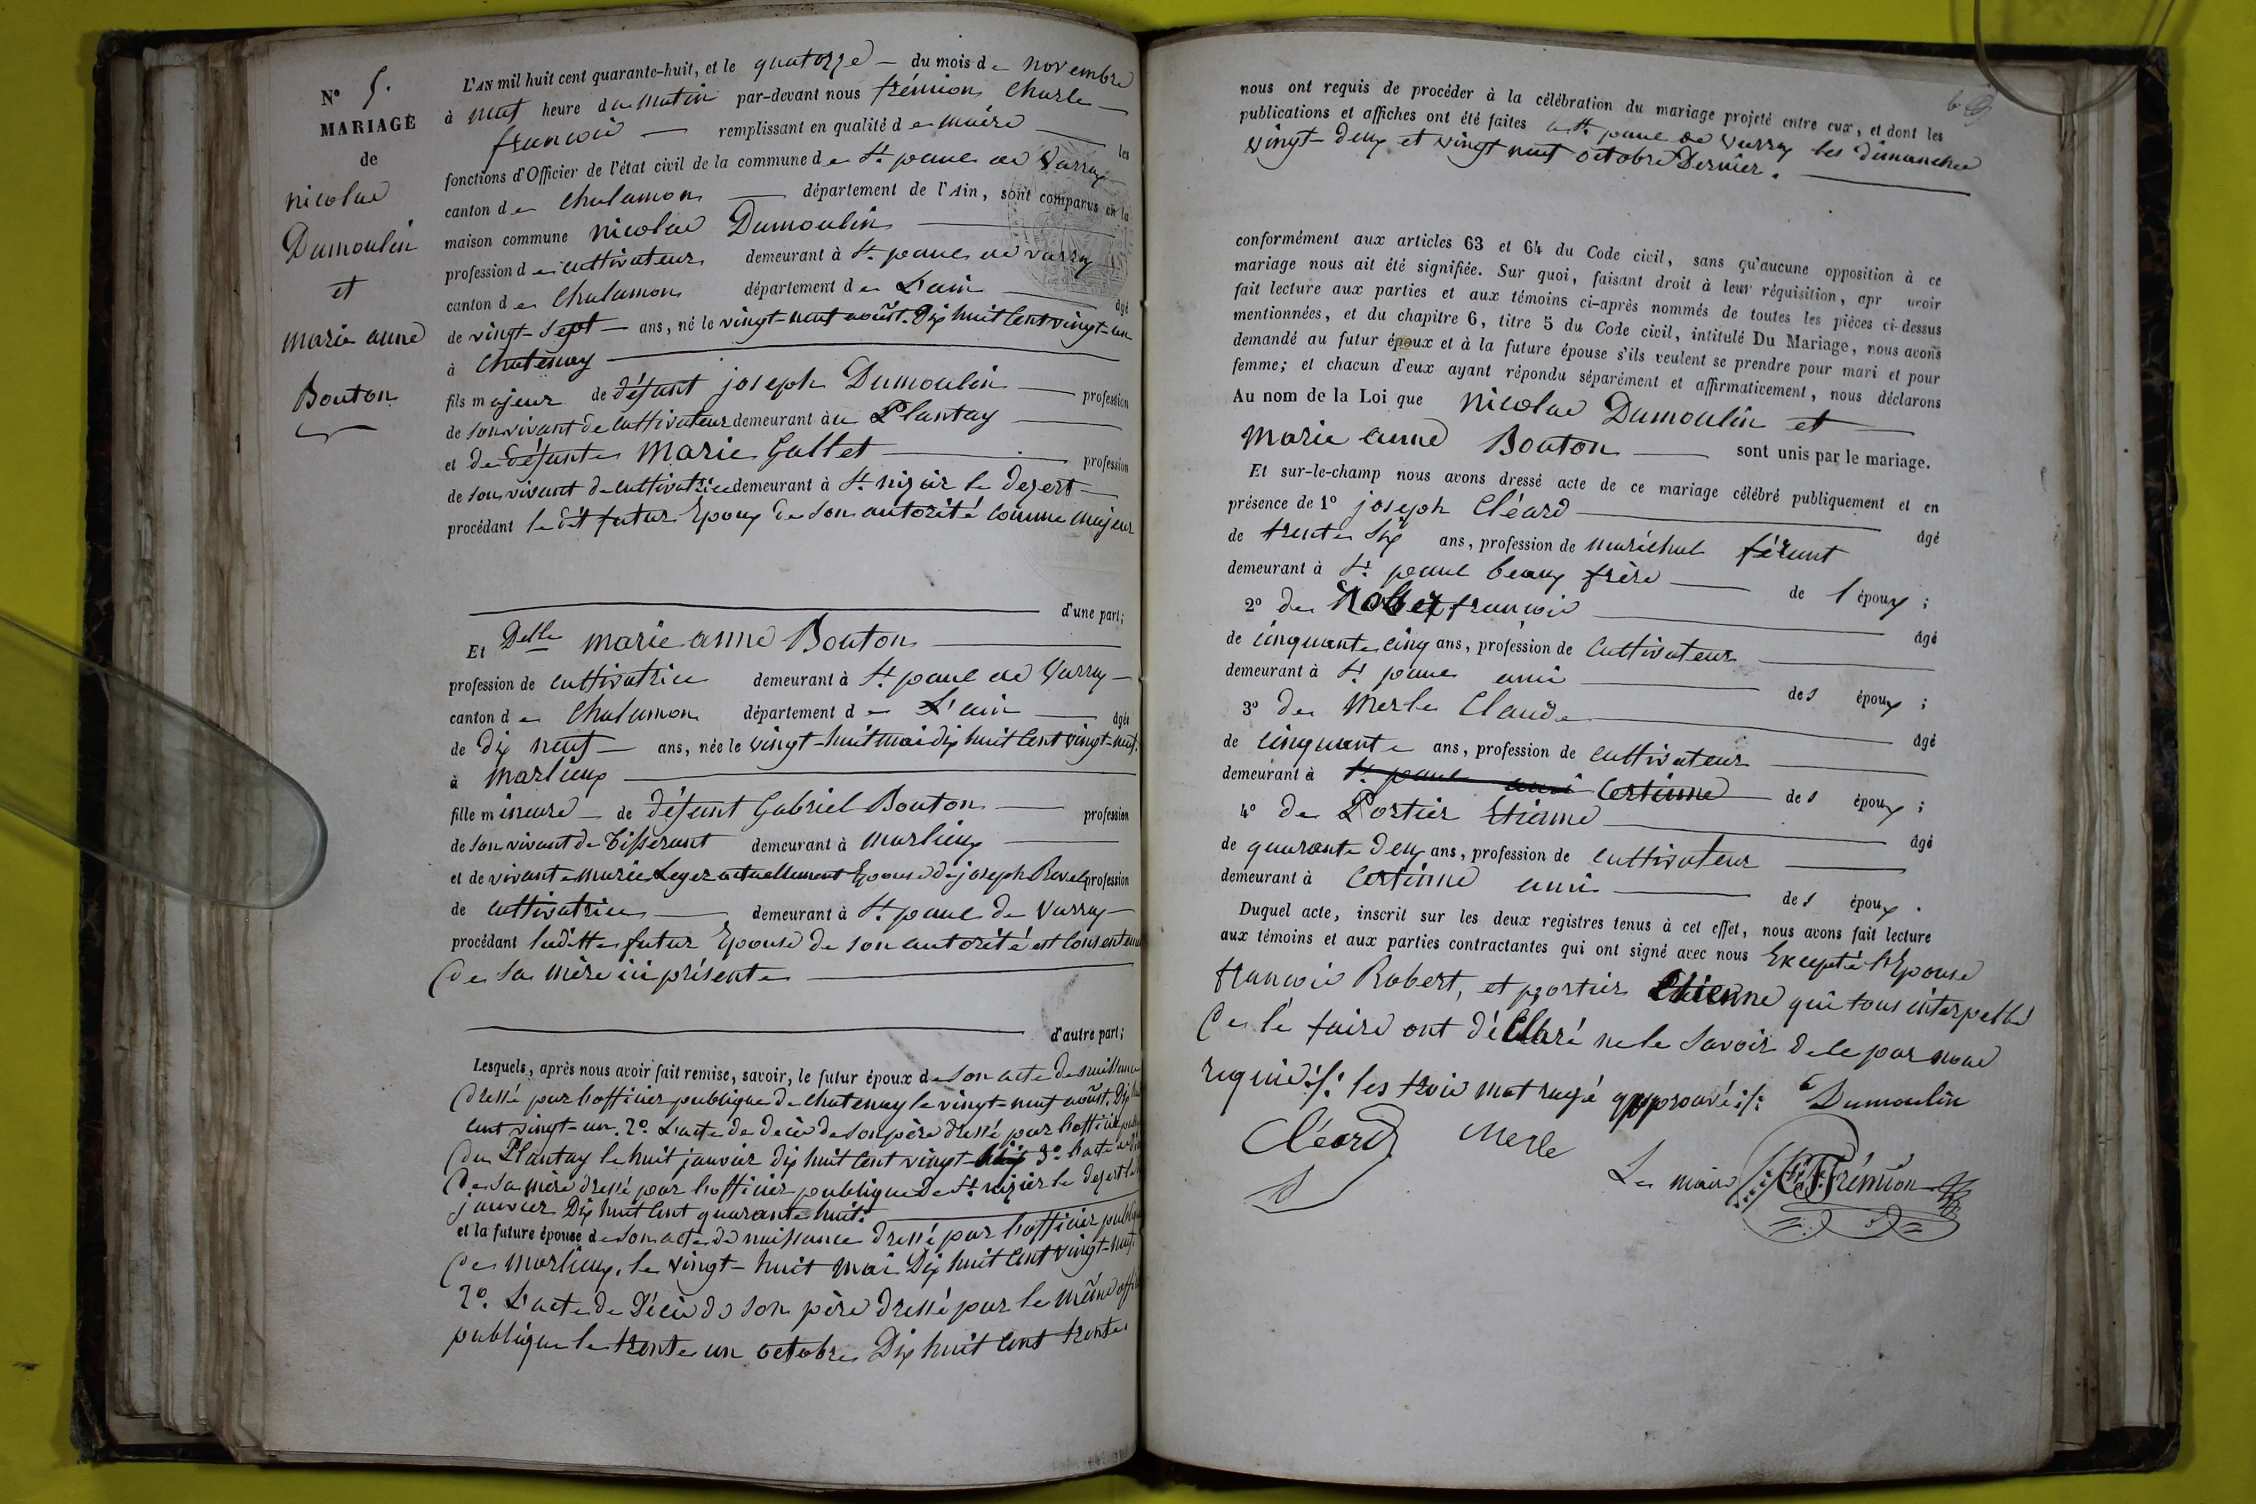 N° 5.
MARIAGE
de
nicolas
Dumoulin
et
marie anne
Bouton
L'AN mil huit cent quarante-huit, et le quatorze du mois de novembre
à neuf heure du matin par-devant nous frémion Charle
francois remplissant en qualité de maire les
fonctions d'Officier de l'état civil de la commune de St paul de Varray
canton de Chalamon département de l'Ain, sont comparus en la
maison commune nicolas Dumoulin
profession de cultivateur demeurant à St paul de varray
canton de Chalamon département de L'ain âgé
de vingt-sept ans, né le vingt-neuf août Dix huit Cent vingt-un
à Chatenay
fils majeur de défunt joseph Dumoulin profession
de son vivant de Cultivateur demeurant au Plantay
et de défunte Marie Gallet profession
de son vivant de Cultivatrice demeurant à St nizier le dezert
procédant le dit futur Epoux de son autorité comme majeur
d'une part;
Et Delle marie anne Bouton
profession de cultivatrice demeurant à St paul de Varray
canton de Chalamon département de L'ain âgée
de dix neuf ans, née le vingt-huit mai dix huit Cent vingt-neuf
à marlieux
fille mineure de défunt Gabriel Bouton profession
de son vivant de Tisserant demeurant à marlieux
et de vivante marie Leger actuellement Epouse de joseph Revel profession
de cultivatrice demeurant à St paul de Varray
procédant laditte futur Epouse de son autorité est Consentement
de sa mère ici présente
d'autre part;
Lesquels, après nous avoir fait remise, savoir, le futur époux de son acte de naissance
dressé par l'officier publique de Chatenay le vingt-neuf août Dix huit
Cent vingt-un. 2° L'acte de décès de son père dressé par l'officier
du Plantay le huit janvier dix huit Cent vingt 3° L'acte de
de sa mère dressé par l'officier publique de St nizier le dezert
janvier Dix huit Cent quarante huit.
et la future épouse de son acte de naissance dressé par l'officier publique
de marlieux, le vingt-huit mai Dix huit Cent vingt-neuf.
2°. L'acte de Décès de son père dressé par le même
publique le trente un octobre Dix huit Cent trente
nous ont requis de procéder à la célébration du mariage projeté entre eux, et dont les
publications et affiches ont été faites à St paul de Varray les dimanches
vingt-deux et vingt neuf octobre Dernier.
conformément aux articles 63 et 64 du Code civil, sans qu'aucune opposition à ce
mariage nous ait été signifiée. Sur quoi, faisant droit à leur réquisition, apr avoir
fait lecture aux parties et aux témoins ci-après nommés de toutes les pièces ci-dessus
mentionnées, et du chapitre 6, titre 5 du Code civil, intitulé Du Mariage, nous avons
demandé au futur époux et à la future épouse s'ils veulent se prendre pour mari et pour
femme; et chacun d'eux ayant répondu séparément et affirmativement, nous déclarons
Au nom de la Loi que nicolas Dumoulin et
Marie anne Bouton sont unis par le mariage.
Et sur-le-champ nous avons dressé acte de ce mariage célébré publiquement et en
présence de 1° joseph Cléard âgé
de trente Six ans, profession de maréchal férant
demeurant à St paul beaux frère de l époux;
2° de Robert francois âgé
de cinquante cinq ans, profession de Cultivateur
demeurant à St paul ami des époux;
3° de Merle Claude âgé
de cinquante ans, profession de cultivateur
demeurant à St paul ami Certinne des époux;
4° de Portier Etienne âgé
de quarante deux ans, profession de cultivateur
demeurant à Certinne ami des époux.
Duquel acte, inscrit sur les deux registres tenus à cet effet, nous avons fait lecture
aux témoins et aux parties contractantes qui ont signé avec nous Excepté l'Epouse
francois Robert, et portier Etienne qui tous interpellé
de le faire ont déclaré ne le savoir de ce par nous
requis ./. les trois mot rayé approuvé ./. Dumoulin
Cléard Merle
Le maire CFrémion